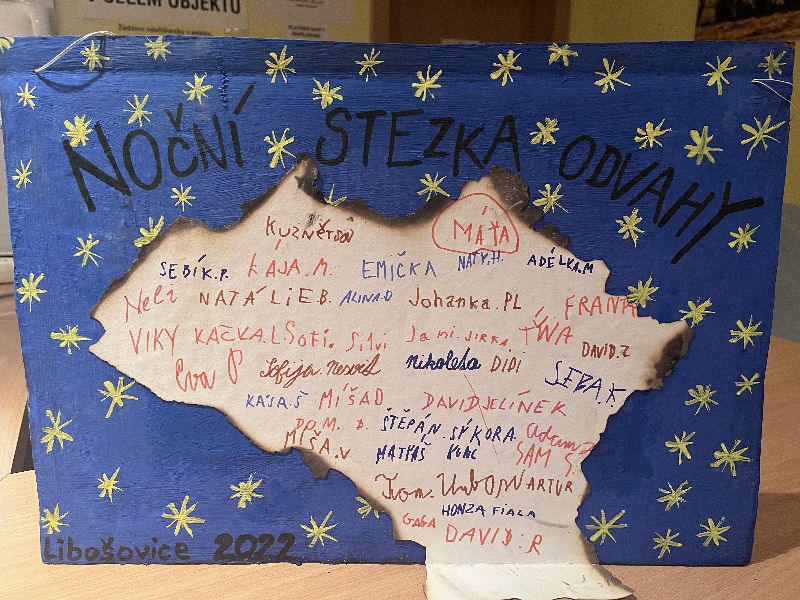 V CELÉM OBJEKTU
NOČNÍ STEZKA ODVAHY
KUZNĚTSOV
MÁŤA
SEBÍK.P. KÁJA.M. EMIČKA NATY.H. ADÉLKA.M
Neli NATÁLIE B. ALINA.D Johanka.PL FRANTA
VIKY KAČKA.L Sofi. Silvi Jami. JIRKA TÝNA DAVID.Z
Eva P Sofija. Nikolesa DIDI SEBA.K
KAJA.Š MÍŠA D DAVID JELÍNEK
DOM. D. ŠTĚPÁN. SÝKORA. adam Z
MÍŠA.V MATYÁŠ KUNC SAM S
Tom. Urban ARTUR
HONZA FIALA
GAGA DAVID.R
Libošovice 2022